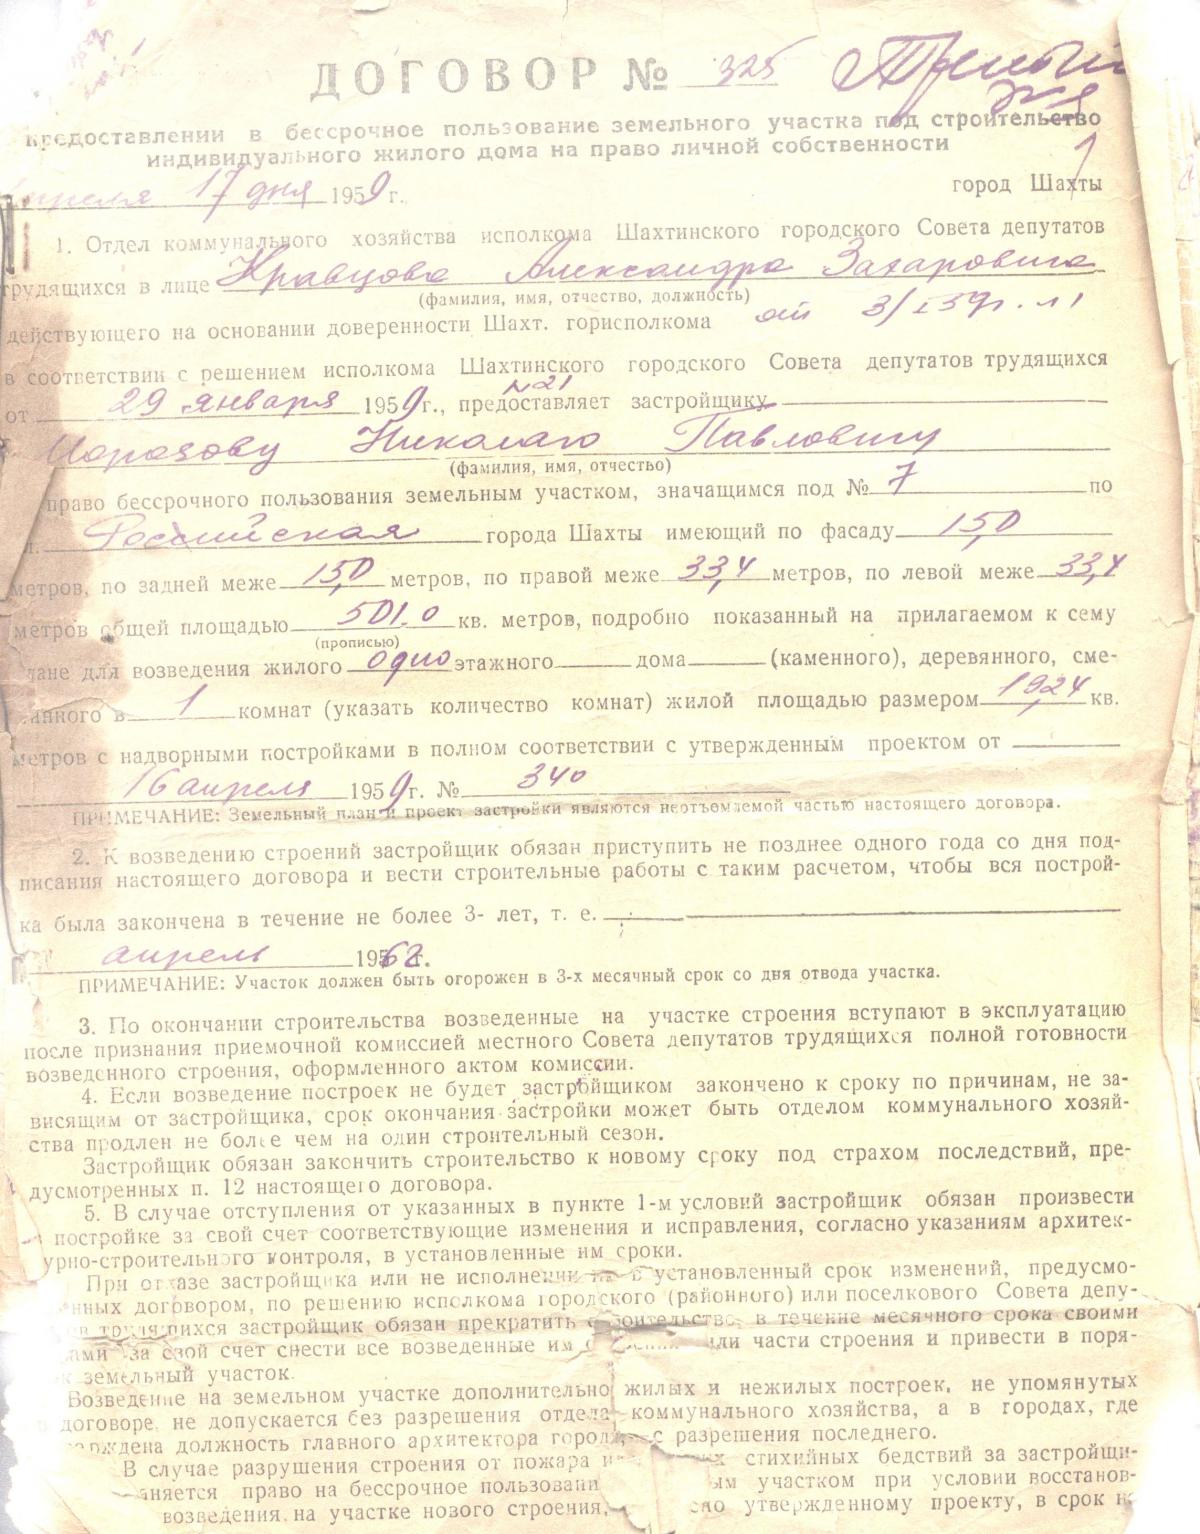 ДОГОВОР № 325
предоставлении в бессрочное пользование земельного участка под строительство
индивидуального жилого дома на право личной собственности
апреля 17 дня 1959 г. город Шахты
1. Отдел коммунального хозяйства исполкома Шахтинского городского Совета депутатов
трудящихся в лице Кравцова Александра Захаровича
(фамилия, имя, отчество, должность)
действующего на основании доверенности Шахт. горисполкома от 3/I 59г. №1
в соответствии с решением исполкома Шахтинского городского Совета депутатов трудящихся
от 29 января 1959 г., №21 предоставляет застройщику
Морозову Николаю Павловичу
(фамилия, имя, отчество)
право бессрочного пользования земельным участком, значащимся под № 7 по
л. Российская города Шахты имеющий по фасаду 15,0
метров, по задней меже 15,0 метров, по правой меже 33,4 метров, по левой меже 33,4
метров общей площадью 501.0 кв. метров, подробно показанный на прилагаемом к сему
(прописью)
лане для возведения жилого одно этажного дома (каменного), деревянного, сме-
анного в 1 комнат (указать количество комнат) жилой площадью размером 19,24 кв.
метров с надворными постройками в полном соответствии с утвержденным проектом от
16 апреля 1959 г. № 340
ПРИМЕЧАНИЕ: Земельный план и проект застройки являются неотъемлемой частью настоящего договора.
2. К возведению строений застройщик обязан приступить не позднее одного года со дня под-
писания настоящего договора и вести строительные работы с таким расчетом, чтобы вся построй-
ка была закончена в течение не более 3- лет, т. е.
апрель 1962 г.
ПРИМЕЧАНИЕ: Участок должен быть огорожен в 3-х месячный срок со дня отвода участка.
3. По окончании строительства возведенные на участке строения вступают в эксплуатацию
после признания приемочной комиссией местного Совета депутатов трудящихся полной готовности
возведенного строения, оформленного актом комиссии.
4. Если возведение построек не будет застройщиком закончено к сроку по причинам, не за-
висящим от застройщика, срок окончания застройки может быть отделом коммунального хозяй-
ства продлен не более чем на один строительный сезон.
Застройщик обязан закончить строительство к новому сроку под страхом последствий, пре-
дусмотренных п. 12 настоящего договора.
5. В случае отступления от указанных в пункте 1-м условий застройщик обязан произвести
постройке за свой счет соответствующие изменения и исправления, согласно указаниям архитек-
урно-строительного контроля, в установленные им сроки.
При отказе застройщика или не исполнении в установленный срок изменений, предусмо-
енных договором, по решению исполкома городского (районного) или поселкового Совета депу-
ов трудящихся застройщик обязан прекратить строительство, в течение месячного срока своими
ами за свой счет снести все возведенные им или части строения и привести в поря-
к земельный участок.
Возведение на земельном участке дополнительно жилых и нежилых построек, не упомянутых
договоре, не допускается без разрешения отдела коммунального хозяйства, а в городах, где
ерждена должность главного архитектора города, с разрешения последнего.
В случае разрушения строения от пожара и стихийных бедствий за застройщи-
аняется право на бессрочное пользовани ым участком при условии восстанов-
возведения на участке нового строения, но утвержденному проекту, в срок н